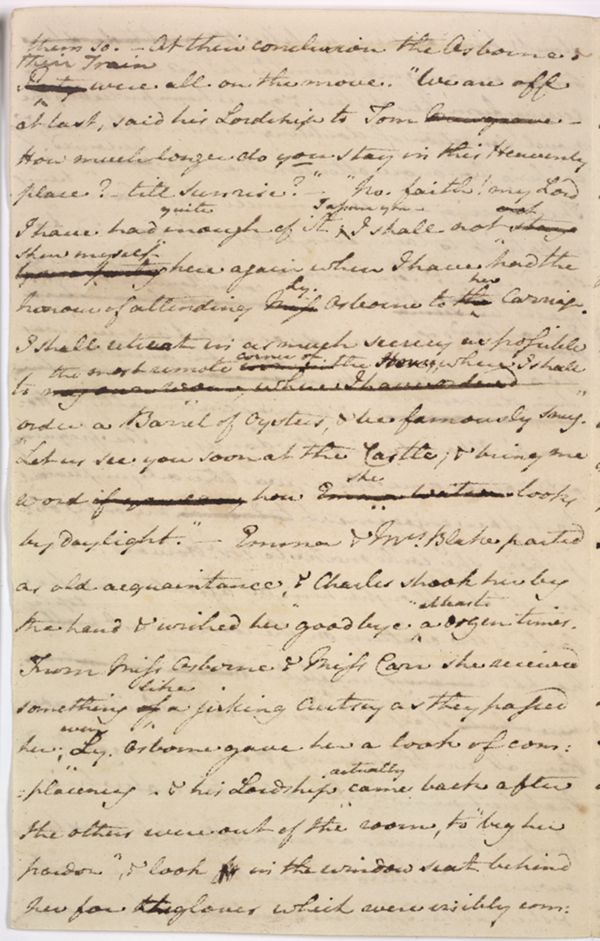 them so. – At their conclusion the Osbornes &
their Train
were all on the move. "We are off
at last, said his Lordship to Tom Musgrave –
How much longer do you stay in this Heavenly
place? – till Sunrise?" – "No, faith! my Lord
quite I assure you not
I have had enough of it, I shall not stay
shew myself
here again when I have had the
Ly. her
honour of attending Miss Osborne to the Carriage.
I shall retreat in as much secrecy as possible
corner of
to the most remote the House, where I shall
my own room, where I have ordered
order a Barrel of Oysters, & be famously snug."
"Let us see you soon at the Castle; & bring me
she
word if you can how Emma Watson looks
by daylight." – Emma & Mrs. Blake parted
as old acquaintance, & Charles shook her by
atleast
the hand & wished her "goodbye" a dozen times.
From Miss Osborne & Miss Carr she received
like
something of a jerking curtsey as they passed
even
her; Ly. Osborne gave her a look of com:
actually
:placency – & his Lordship came back after
the others were out of the room, to "beg her
pardon", & look in the window seat behind
her for the gloves which were visibly com: